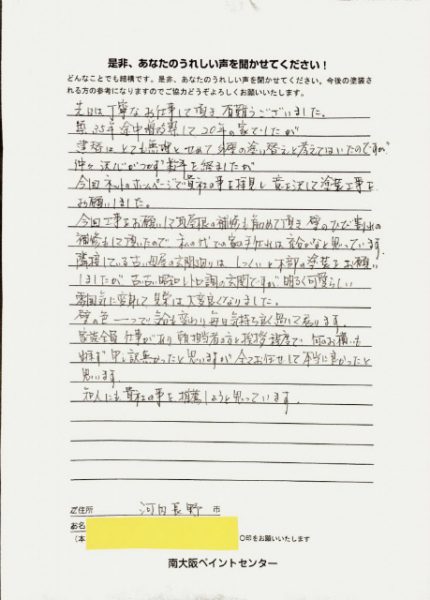 是非、あなたのうれしい声を聞かせてください！
どんなことでも結構です。是非、あなたのうれしい声を聞かせてください。今後の塗装さ
れる方の参考になりますのでご協力どうぞよろしくお願いいたします。
先日は丁寧なお仕事して頂き有難うございました。
築35年 途中 して20年の家でしたが
はとても無理とせめて外壁の塗り替えと考えてはいたのですが
仲々 決心がつかず 数年を経ましたが
今回ネットのホームページで貴社の事を拝見し 意を決して塗装工事を
お願いしました。
今回工事をお願いして 屋根の補修も含めて頂き 壁のひび割れの
補修もして頂いたので 私の代での家の手入れは 充分かなと思っています。
隣接している古い母屋の玄関廻りは しっくいと木部の塗装をお願い
しましたが 古い昭和レトロ調の玄関ですが 明るく可愛らしい
雰囲気に変わって 見栄は大変良くなりました。
壁の色一つで気分も変わり毎日気持ち良く思って居ります。
家族全員 仕事があり 担当者の方と挨拶程度で 何のお構いも
出来ず 申し訳無かったと思いますが 全てお任せして本当に良かったと
思います。
知人にも貴社の事を推薦しようと思っています。
ご住所 河内長野 市
お名
(本 〇印をお願いいたします
南大阪ペイントセンター